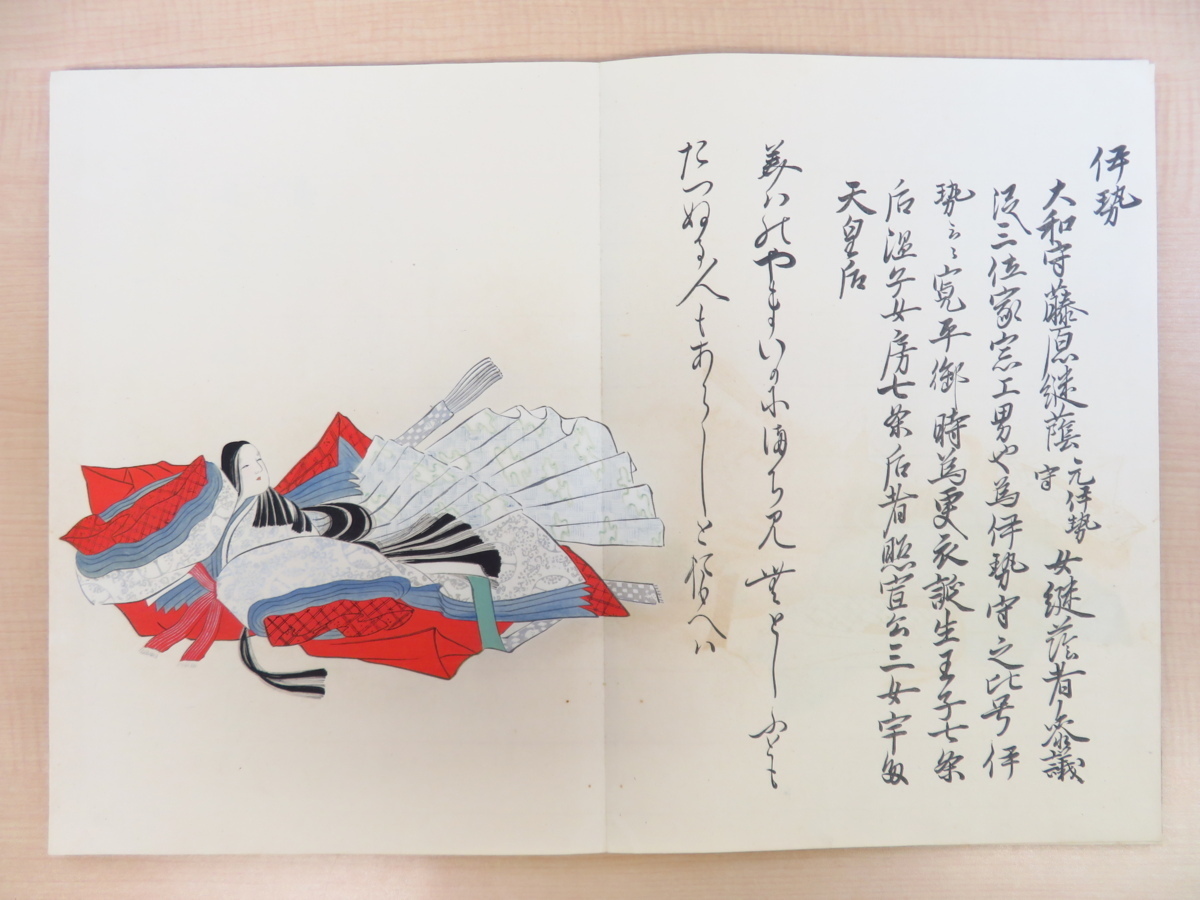 伊勢
大和守藤原継蔭 元伊勢守 女継蔭者参議
従三位家宗二男也為伊勢守之比号伊
勢云々寛平御時為更衣誕生王子七条
后温子女房七条后者昭宣公三女宇多
天皇后
美八能やまいかにまち見無としふとも
たつぬる人もあらしとおもへハ